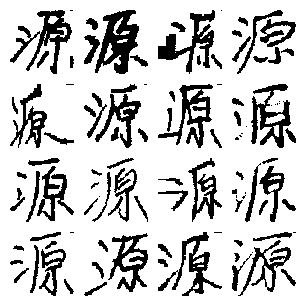 源源源源
源源源源
源源源源
源源源源